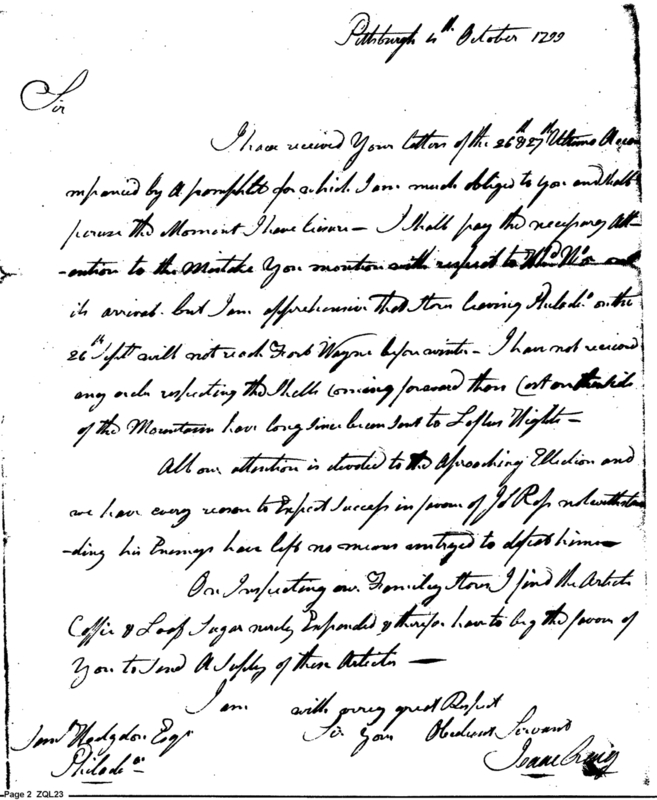 Pittsburgh 4th October 1799
Sir
I have received Your letters of the 26th & 27th Ultimo Accom
mpanied by A pamphlet for which I am much obliged to you and shall
peruse the Moment I have liesure – I shall pay the necessary Att-
-ention to the Mistake You mention with respect to
its arrival. but I am apprehensive that Stores leaving Philada. on the
26th Sept. will not reach Fort Wayne before winter – I have not received
any order respecting the Shells Coming forward those Cast on this side
of the Mountain have long since been sent to Loftus Hights –
All our attention is devoted to the Aproaching Ellection and
we have every reason to Expect Success in favour of Js Ross notwithstan
-ding his Enemys have left no means untryed to defeat him –
On Inspecting our Familey Stores I find the Articls
Coffie & Loaf Sugar nearly Expended & therefor have to beg the favour of
You to Send A Suply of these Articles —
I am with every great Respect
Sir Your Obedient Servant
Isaac Craig
Saml. Hodgdon Esqr
Philada.
Page 2 ZQL23